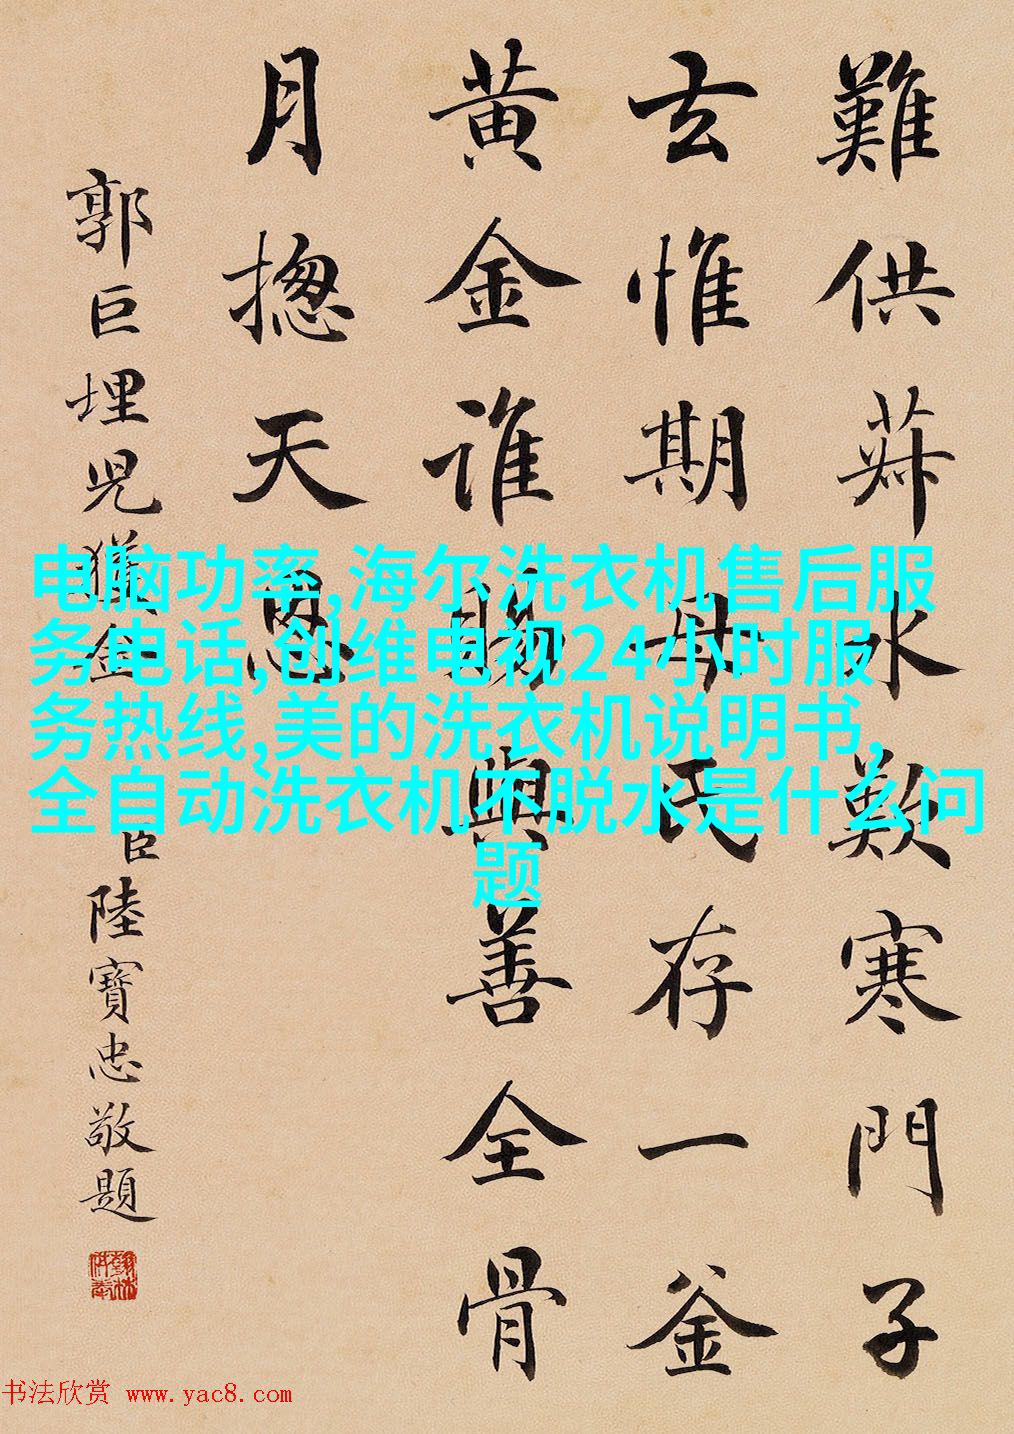 難供菽水歎寒門子
玄惟期母氏存一釜
黄金誰賜與善全骨
月揔天恩
郭巨埋児獲金
臣陸寶忠敬題
翰林供奉
电脑功率,海尔洗衣机售后服
务电话,创维电视24小时服
务热线,美的洗衣机说明书,
全自动洗衣机不脱水是什么问
题
书法欣赏 www.yac8.com